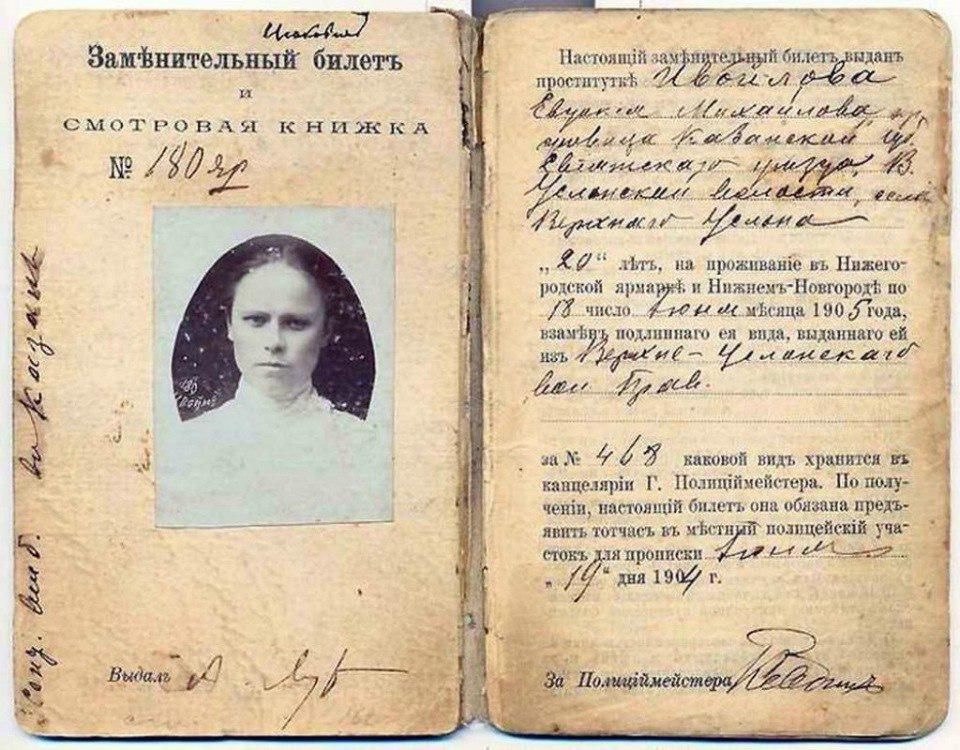 Замѣнительный билетъ
и
СМОТРОВАЯ КНИЖКА
№ 180 яр
Выдалъ
Настоящій замѣнительный билетъ выданъ
проституткѣ Ивойлова
Михайлова
Казанской губ
уѣзда, В.
Услонской волости, села
Верхняго Услона
„20“ лѣтъ, на проживаніе въ Нижего-
родской ярмаркѣ и Нижнемъ-Новгородѣ по
18 число Іюня мѣсяца 1905 года,
взамѣнъ подлиннаго ея вида, выданнаго ей
изъ Верхне-Услонскаго
вол Прав.
за № 468 каковой видъ хранится въ
канцеляріи Г. Полиціймейстера. По полу-
ченіи, настоящій билетъ она обязана предъ-
явить тотчасъ въ мѣстный полицейскій уча-
стокъ для прописки Іюня
„19“ дня 1904 г.
За Полиціймейстера